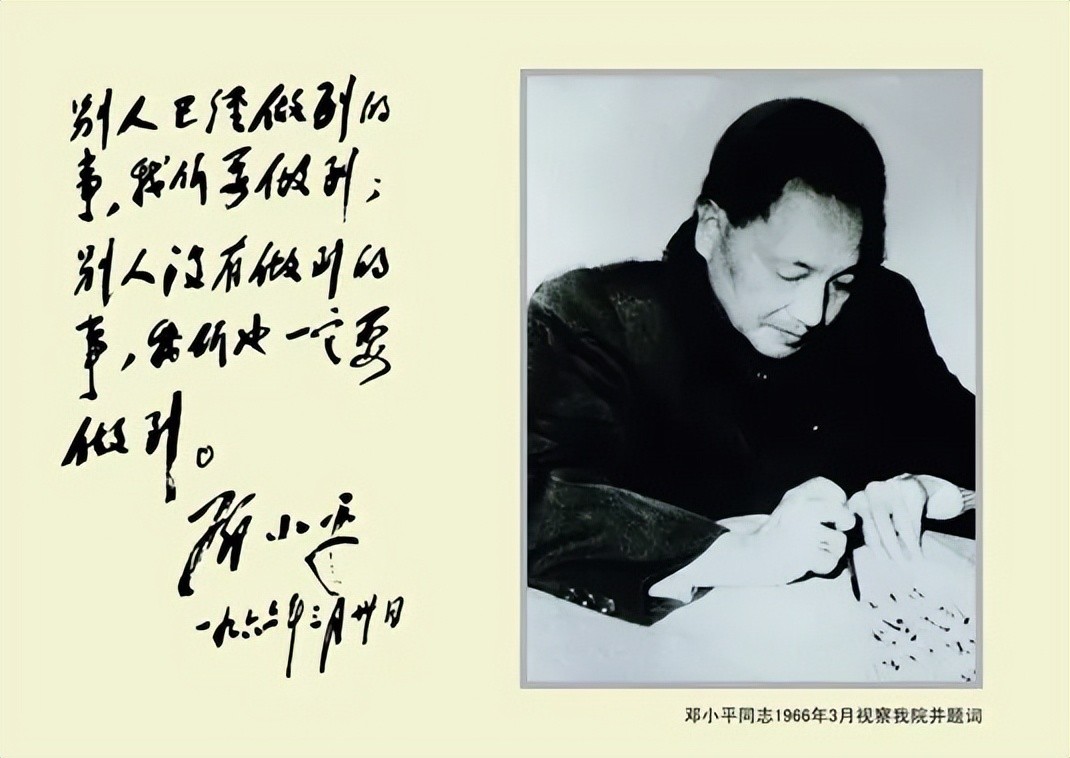 别人已经做到的
事，我们要做到；
别人没有做到的
事，我们也一定要
做到。
邓小平
一九六六年三月卅日
邓小平同志1966年3月视察我院并题词